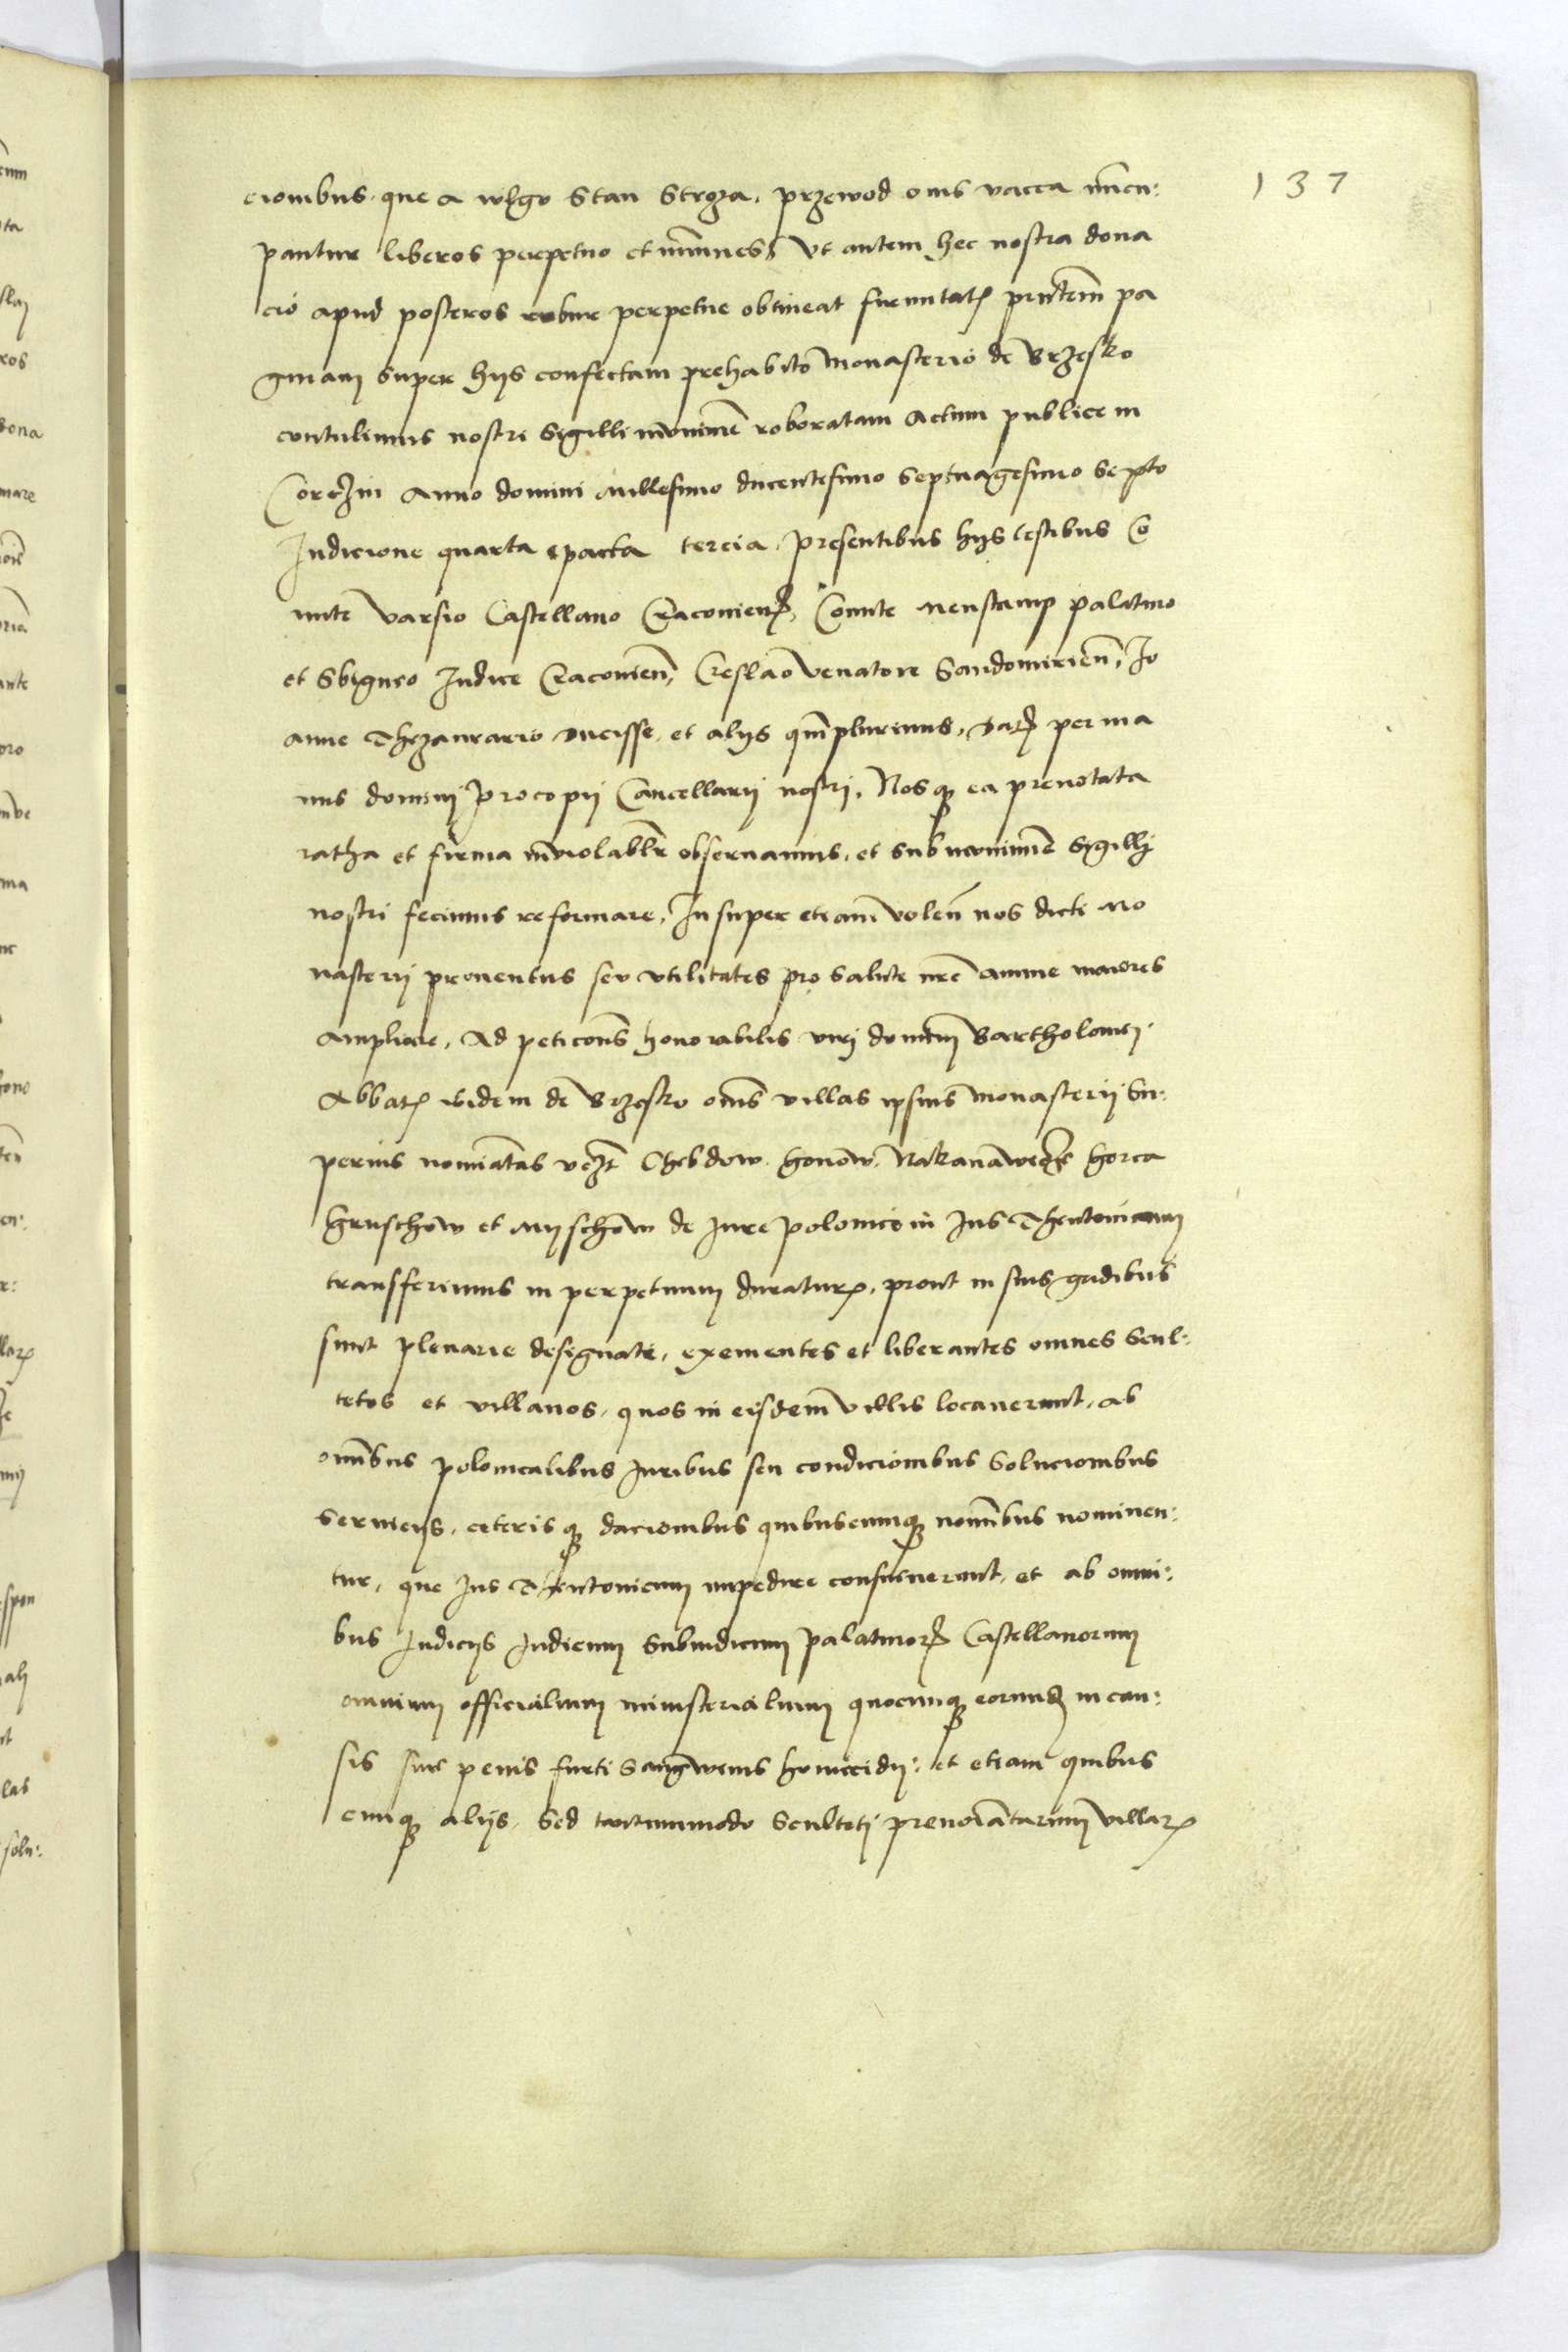 137
cionibus. que a wlgo Stan Stroza. przewod ouis vacca nu̅cu:
pantur liberos perpetuo et inmunes. Vt autem hec nostra dona
cio apud posteros robur perpetue obtineat firmitatꝭ prn̅tem pa
ginam super hijs confectam prehabito Monasterio de Brzesko
contulimus nostri Sigilli munimi̅e roboratam Actum publice in
Corczin Anno domini Millesimo ducentesimo Septuagesimo Sexto
Indicione quarta epacta tercia. presentibus hijs testibus Co
mite Varsio Castellano Cracouienꝭ, Comite Neustamp palatino
et Sbigneo Iudice Cracouien̅, Creslao Venatore Sandomirien̅, Io
anne Thezaurario ducisse. et alijs qm̅plurimis. Datꝭ per ma
nus domini Procopij Cancellarij nostri. Nosqꝫ ea prenotata
ratha et firma inuiolabl̅r obseruamus. et sub munimi̅e Sigillj
nostri fecimus reformare. Insuper etiam volen̅ nos dicti Mo
nasterij prouentus seu vtilitates pro salute nr̅e anime maiores
Ampliare. Ad peticonẽ honorabilis viri domini Bartholomei.
Abbatꝭ ibidem de Brzesko om̅s villas ipsius monasterij Su:
perius nomi̅atas vcꝫt Chebdow. honow. Nakanawecze horca
Gruschow et Myschow de Iure polonico in Ius Theutonicum
transferimus in perpetuum duraturꝭ. prout in suis gadibus
sunt plenarie designate. eximentes et liberantes omnes Scul:
tetos et villanos. quos in eisdem villis locauerunt. Ab
omi̅bus polonicalibus Iuribus seu condicionibus Solucionibus
Seruicijs. ceterisqꝫ dacionibus quibuscumqꝫ nomi̅bus nominen:
tur. que Ius Theutonicum impedire consueuerunt. et ab omni:
bus Iudicijs Iudicum Subiudicum palatinorꝭ Castellanorum
omnium officialium ministerialium quocumqꝫ eorundꝫ in cau:
sis siue penis furti Sangwinis homicidij: et etiam quibus
cumqꝫ alijs. Sed tantummodo Sculteti prenoi̅atarum villarꝭ